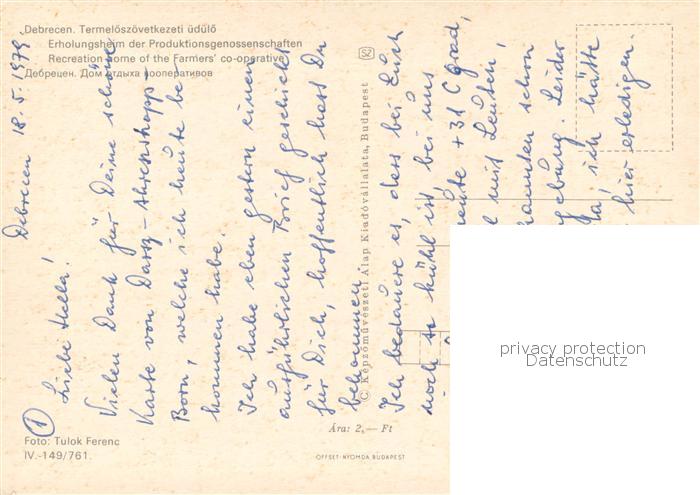 Debrecen. Termelőszövetkezeti üdülő
Erholungsheim der Produktionsgenossenschaften
Recreation home of the Farmers' co-operative
Дебрецен. Дом отдыха кооперативов
Debrecen 18.5.1979
Liebe Hella!
Vielen Dank für Deine schöne
Karte von Darss-Ahrenshoop-
Born, welche ich heute be-
kommen habe.
Ich habe eben gestern einen
ausführlichen Brief geschickt
für Dich, hoffentlich hast Du
bekommen
Ich bedauere es, dass bei Euch
noch so kühl ist bei uns
heute +31 C grad,
mit Leuten,
schon
Leider
ich hätte
hier erledigen.
1
C. Képzőművészeti Alap Kiadóvállalata, Budapest
Foto: Tulok Ferenc
IV.-149/761.
Ára: 2,— Ft
OFFSET-NYOMDA BUDAPEST
privacy protection
Datenschutz